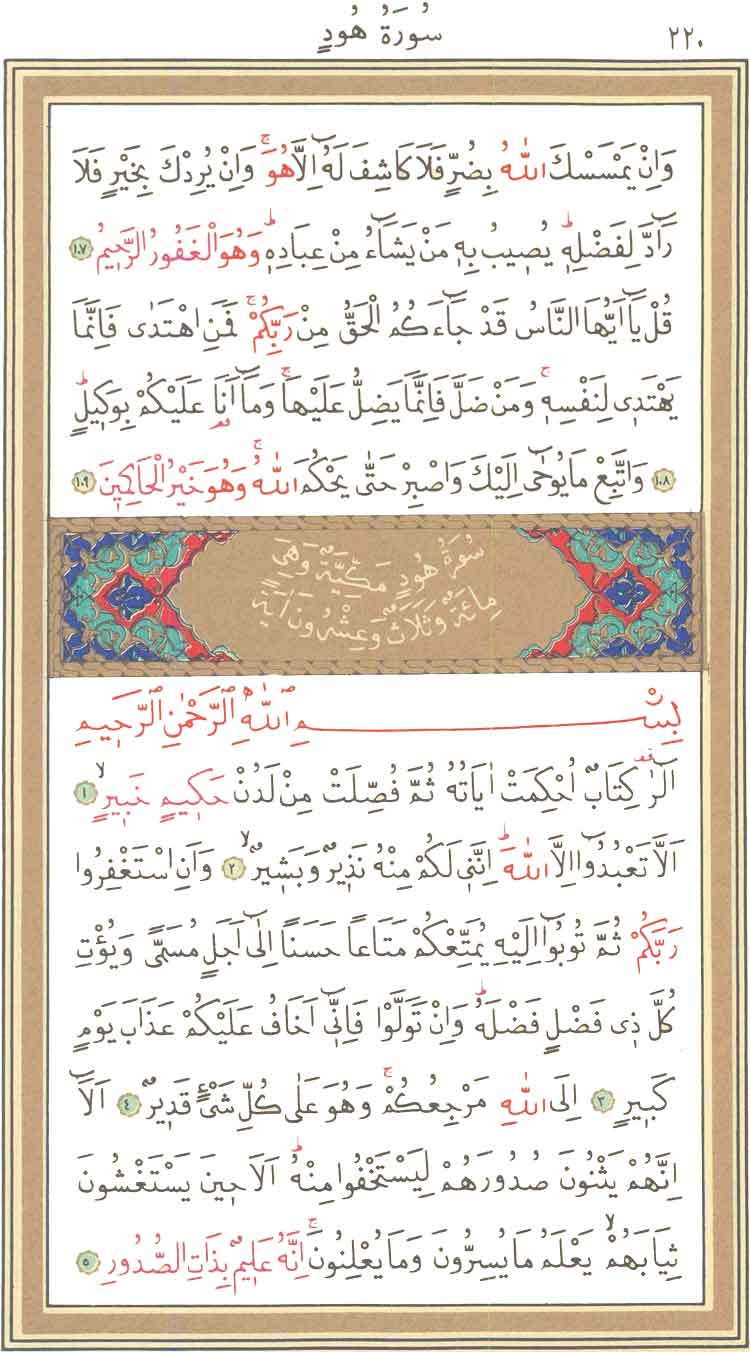 سُورَةُ هُودٍ
٢٢٠
وَاِنْ يَمْسَسْكَ اللّٰهُ بِضُرٍّ فَلَا كَاشِفَ لَهُٓ اِلَّا هُوَۚ وَاِنْ يُرِدْكَ بِخَيْرٍ فَلَا
رَٓادَّ لِفَضْلِه۪ۜ يُص۪يبُ بِه۪ مَنْ يَشَٓاءُ مِنْ عِبَادِه۪ۜ وَهُوَ الْغَفُورُ الرَّح۪يمُ ١٠٧
قُلْ يَٓا اَيُّهَا النَّاسُ قَدْ جَٓاءَكُمُ الْحَقُّ مِنْ رَبِّكُمْۚ فَمَنِ اهْتَدٰى فَاِنَّمَا
يَهْتَد۪ي لِنَفْسِه۪ۚ وَمَنْ ضَلَّ فَاِنَّمَا يَضِلُّ عَلَيْهَاۚ وَمَٓا اَنَا۬ عَلَيْكُمْ بِوَك۪يلٍۜ
١٠٨ وَاتَّبِعْ مَا يُوحٰٓى اِلَيْكَ وَاصْبِرْ حَتّٰى يَحْكُمَ اللّٰهُۚ وَهُوَ خَيْرُ الْحَاكِم۪ينَ ١٠٩
سُورَةُ هُودٍ مَكِّيَّةٌ وَهِيَ
مِائَةٌ وَثَلَاثٌ وَعِشْرُونَ اٰيَةً
بِسْمِ اللّٰهِ الرَّحْمٰنِ الرَّح۪يمِ
الٓرٰ۠ كِتَابٌ اُحْكِمَتْ اٰيَاتُهُ ثُمَّ فُصِّلَتْ مِنْ لَدُنْ حَك۪يمٍ خَب۪يرٍۙ ١
اَلَّا تَعْبُدُٓوا اِلَّا اللّٰهَۜ اِنَّن۪ي لَكُمْ مِنْهُ نَذ۪يرٌ وَبَش۪يرٌۙ ٢ وَاَنِ اسْتَغْفِرُوا
رَبَّكُمْ ثُمَّ تُوبُٓوا اِلَيْهِ يُمَتِّعْكُمْ مَتَاعًا حَسَنًا اِلٰٓى اَجَلٍ مُسَمًّى وَيُؤْتِ
كُلَّ ذ۪ي فَضْلٍ فَضْلَهُۜ وَاِنْ تَوَلَّوْا فَاِنّ۪ٓي اَخَافُ عَلَيْكُمْ عَذَابَ يَوْمٍ
كَب۪يرٍ ٣ اِلَى اللّٰهِ مَرْجِعُكُمْۚ وَهُوَ عَلٰى كُلِّ شَيْءٍ قَد۪يرٌ ٤ اَلَٓا
اِنَّهُمْ يَثْنُونَ صُدُورَهُمْ لِيَسْتَخْفُوا مِنْهُۜ اَلَا ح۪ينَ يَسْتَغْشُونَ
ثِيَابَهُمْۙ يَعْلَمُ مَا يُسِرُّونَ وَمَا يُعْلِنُونَۚ اِنَّهُ عَل۪يمٌ بِذَاتِ الصُّدُورِ ٥